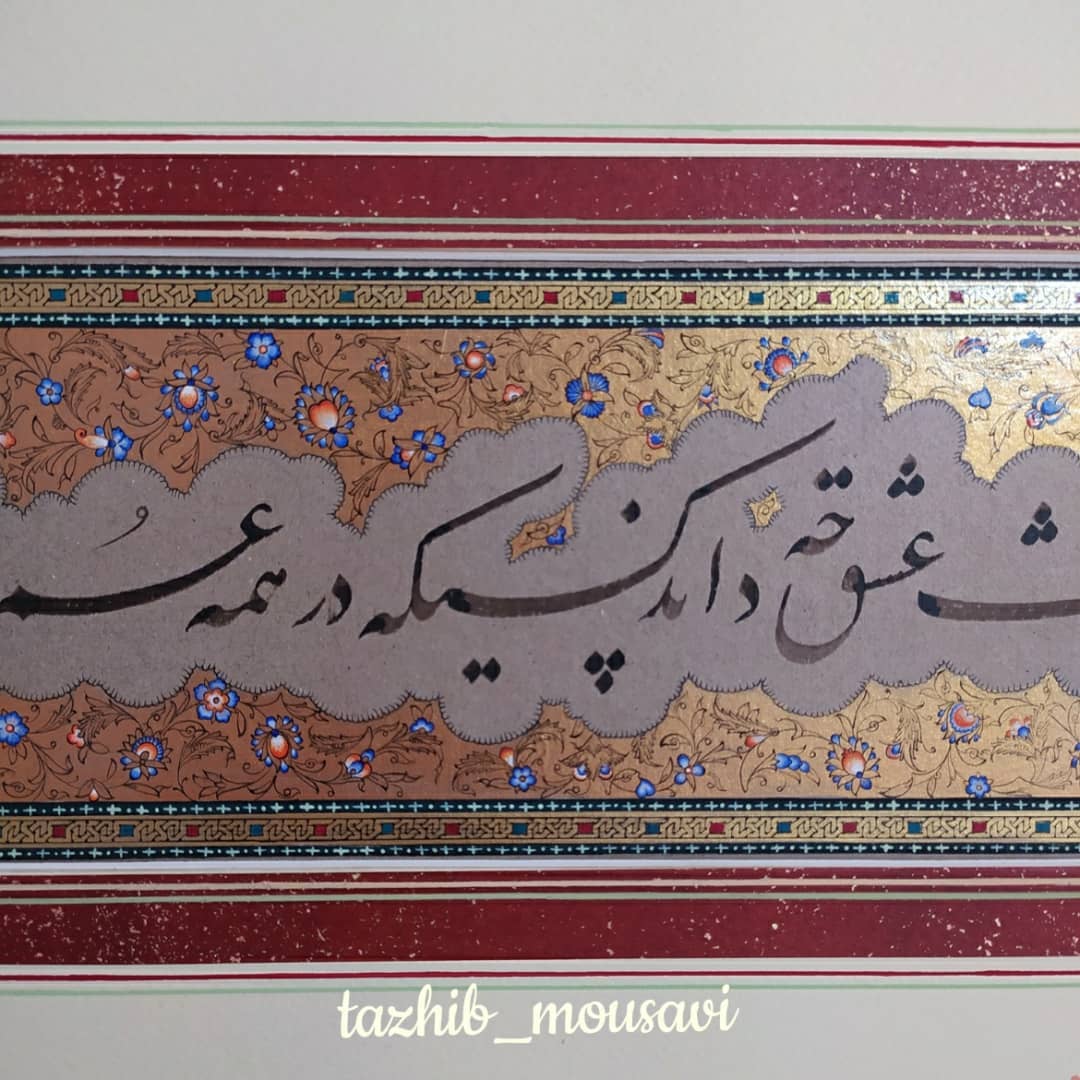 عشق چه داند کسیکه در همه عُم
tazhib_mousavi